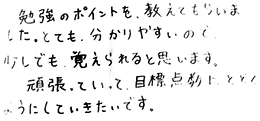 勉強のポイントを、教えてもらいま
した。とても、分かりやすいので
少しでも、覚えられると思います。
頑張っていって、目標点数にとど
ようにしていきたいです。